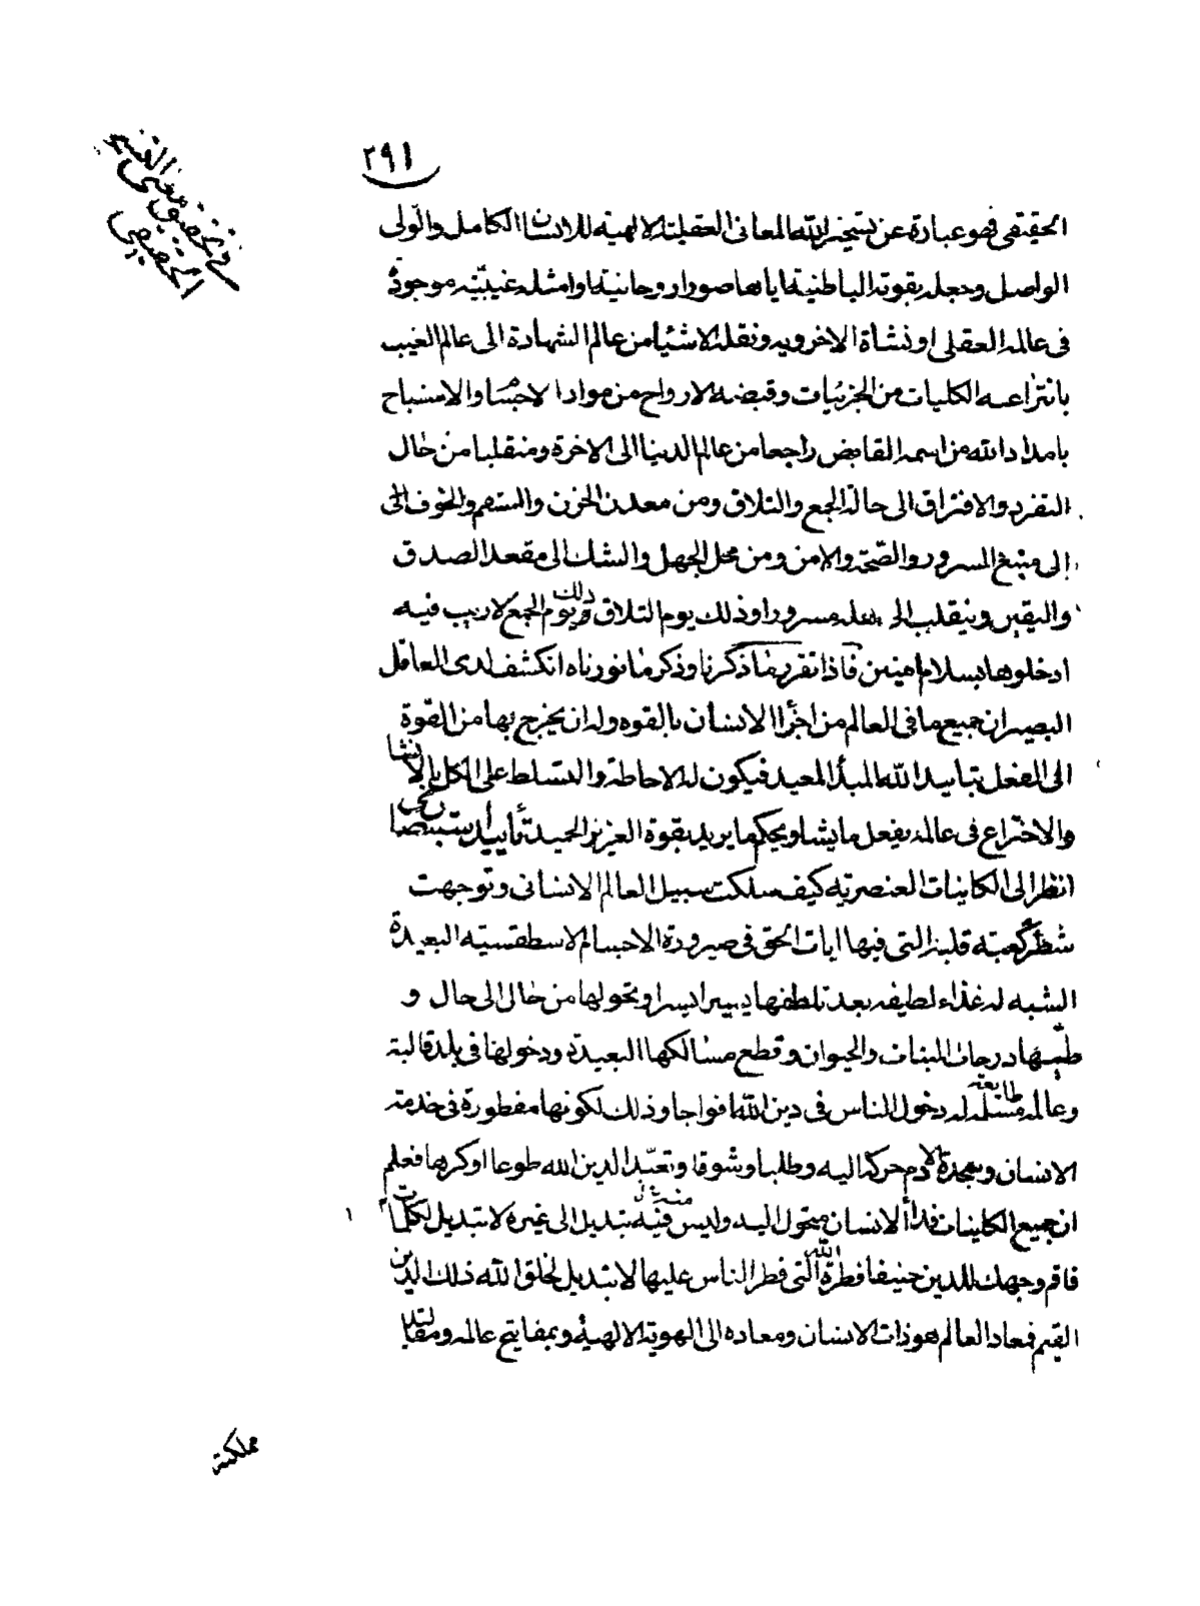 ٢٩١
في تحقيق معنى التسخير
الحقيقي
الحقيقي فهو عبارة عن تسخير الله المعاني العقلية الالهية للانسان الكامل والولى
الواصل وجعله بقوته الباطنية اياها صورا روحانية او امثلة غيبيّة موجودة
في عالمه العقلى او نشاة الاخرويه ونقله الاشيا من عالم الشهادة الى عالم الغيب
بانتزاعه الكليات من الجزئيات وقبضه الارواح من مواد الاجسام والاشباح
بامداد الله من اسمه القابض راجعا من عالم الدنيا الى الاخرة ومنقلبا من حال
التفرد والافتراق الى حالة الجمع والتلاق ومن معدن الحزن والسقم والخوف الى
الى منبع السرور والصّحة والامن ومن محل الجهل والشك الى مقعد الصدق
واليقين وينقلب الى اهله مسرورا وذلك يوم التلاق ذلك يوم الجمع لاريب فيه
ادخلوها بسلام امنين فاذا تقرر ما ذكرنا وذكر ما نورناه انكشف لدى العاقل
البصير ان جميع ما في العالم من اجزأ الانسان بالقوه وله ان يخرج بها من القوة
الى الفعل بتاييد الله المبدأ المعيد فيكون له الاحاطة والتسلط على الكل بالانشا
والاختراع في عالمه يفعل ما يشا ويحكم ما يريد بقوة العزيز الحميد تأييد استبصارى
انظر الى الكاينات العنصرية كيف سلكت سبيل العالم الانسانى وتوجهت
شطر كعبة قلبه التى فيها ايات الحق في صيرورة الاجسام الاسطقسيته البعيدة
الشبه له غذاء لطيفه بعد تلطفها يسيرا يسيرا وتحولها من حال الى حال و
طيّها درجات النبات والحيوان وقطع مسالكها البعيدة ودخولها في بلد قالبه
وعالمه مسلمه طايعة له دخول الناس في دين الله افواجا وذلك لكونها مفطورة في خدمته
الانسان وسجدة الادم حركة اليه وطلبا وشوقا وتعبّد الدين الله طوعا او كرها فعلم
ان جميع الكاينات فدأ الانسان متحول اليه وليس فيه منه تبديل الى غيره لا تبديل لكلمات
فاقم وجهك للدين حنيفا فطرة الله التى فطر الناس عليها لا تبديل لخلق الله ذلك الدين
القيم فمعاد العالم هو ذات الانسان ومعاده الى الهوية الالهية وبمفاتيح عالمه ومقاليد
مملكته